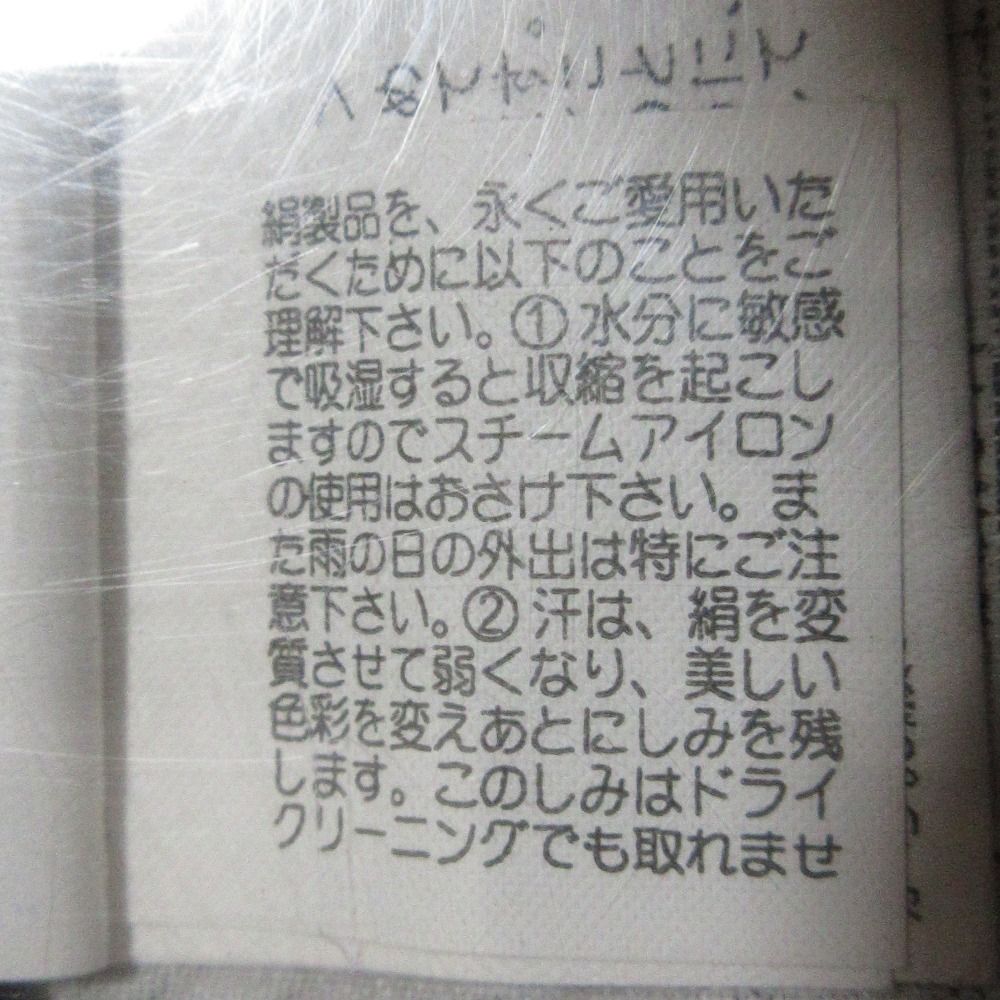 絹製品を、永くご愛用いた
だくために以下のことをご
理解下さい。①水分に敏感
で吸湿すると収縮を起こし
ますのでスチームアイロン
の使用はおさけ下さい。ま
た雨の日の外出は特にご注
意下さい。②汗は、絹を変
質させて弱くなり、美しい
色彩を変えあとにしみを残
します。このしみはドライ
クリーニングでも取れませ